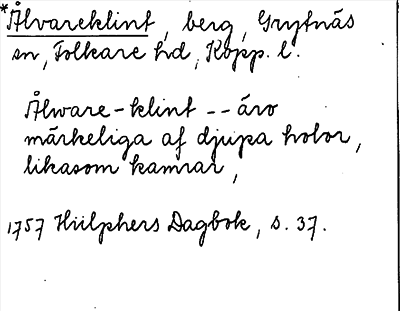 *Ålvareklint, berg, Grytnäs
sn, Folkare hd, Kopp. l.
Ålware-klint -- äro
märkeliga af djupa holor,
likasom kamrar,
1757 Hülphers Dagbok, s. 37.